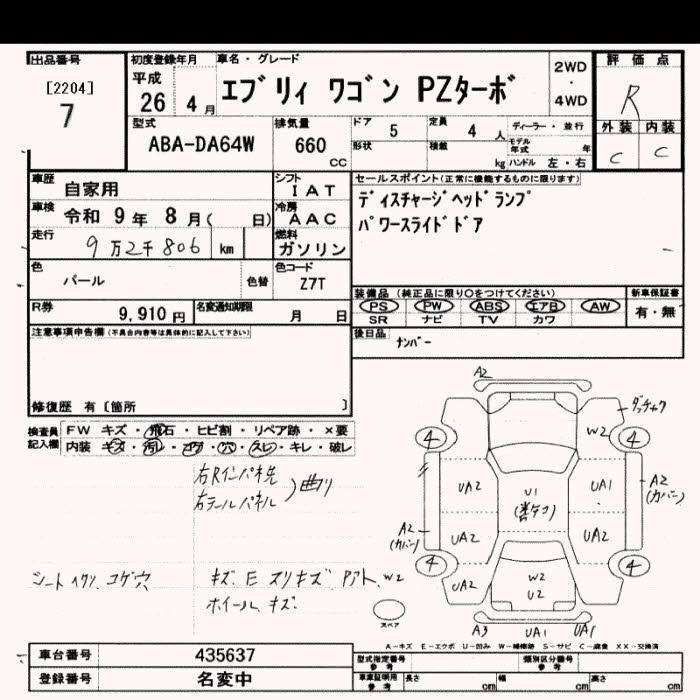 出品番号
[2204]
7
初度登録年月
平成
26 4月
車名・グレード
エブリィ ワゴン PZターボ
2WD
・
4WD
評価点
R
外装 内装
C C
型式
ABA-DA64W
排気量
660
CC
ドア 5
定員 4 人
ディーラー・並行
形状
積載 kg
モデル年式 年
ハンドル 左・右
車歴 自家用
シフト IAT
車検 令和 9年 8月( 日)
冷房 AAC
走行 9万2千806 km
燃料 ガソリン
セールスポイント(正常に機能するものに限ります)
ディスチャージヘッドランプ
パワースライドドア
色 パール
色替
色コード Z7T
装備品 (純正品に限り○をつけてください)
PS PW ABS エアB AW
SR ナビ TV カワ
新車保証書
有・無
R券 9,910円
名変通知期限 月 日
後日品 ナンバー
注意事項申告欄(不具合内容等は具体的に記入して下さい)
修復歴 有〔箇所 〕
検査員記入欄
FW キズ・飛石・ヒビ割・リペア跡・×要
内装 キズ・汚レ・コゲ・穴・スレ・キレ・破レ
右Rインパネ先
右テールパネル
)曲り
シートヘタリ、コゲ穴
キズ E スリキズ Pアト
ホイールキズ
A2
4 W2 4
UA2 U1 UA1
A2
(カバン)
A2
(カバン)
UA2 UA2
4 4
W2 UA2 W2
U2
スペア
A3 UA1 UA1
A-キズ E-エクボ U-凹み W-補修跡 S-サビ C-腐食 XX-交換済
車台番号 435637
登録番号 名変中
型式指定番号
参考
類別区分番号
参考
車庫証明用
参考
長さ cm 幅 cm 高さ cm